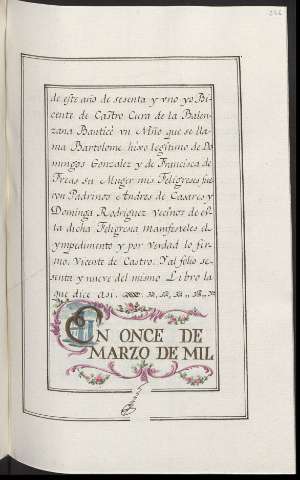 de este año de sesenta y uno yo Bi-
cente de Castro Cura de la Baien-
zana Bauticè un Niño que se lla-
ma Bartolome hixo legitimo de Do-
mingos Gonzalez y de Francisca de
Freas su Muger mis Feligreses fue-
ron Padrinos Andres de Casares y
Dominga Rodriguez Vecinos de es-
ta dicha Feligresia manifesteles el
ympedimento y por verdad lo fir-
mo. Vicente de Castro. Y al folio se-
senta y nueve del mismo Libro la
que dice asi.
EN ONCE DE
MARZO DE MIL